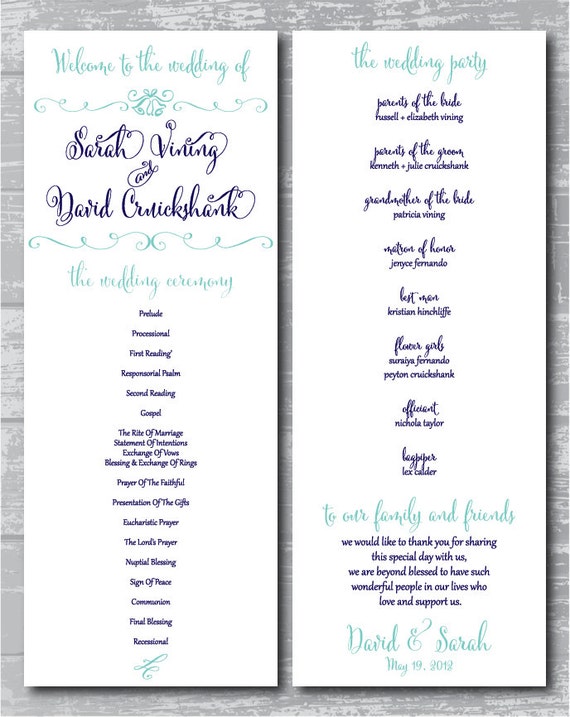 Welcome to the wedding of
Sarah Vining
and
David Cruickshank
the wedding ceremony
Prelude
Processional
First Reading'
Responsorial Psalm
Second Reading
Gospel
The Rite Of Marriage
Statement Of Intentions
Exchange Of Vows
Blessing & Exchange Of Rings
Prayer Of The Faithful
Presentation Of The Gifts
Eucharistic Prayer
The Lord's Prayer
Nuptial Blessing
Sign Of Peace
Communion
Final Blessing
Recessional
the wedding party
parents of the bride
russell + elizabeth vining
parents of the groom
kenneth + julie cruickshank
grandmother of the bride
patricia vining
matron of honor
jenyce fernando
best man
kristian hinchliffe
flower girls
suraiya fernando
peyton cruickshank
officiant
nichola taylor
bagpiper
lex calder
to our family and friends
we would like to thank you for sharing
this special day with us,
we are beyond blessed to have such
wonderful people in our lives who
love and support us.
David & Sarah
May 19, 2012